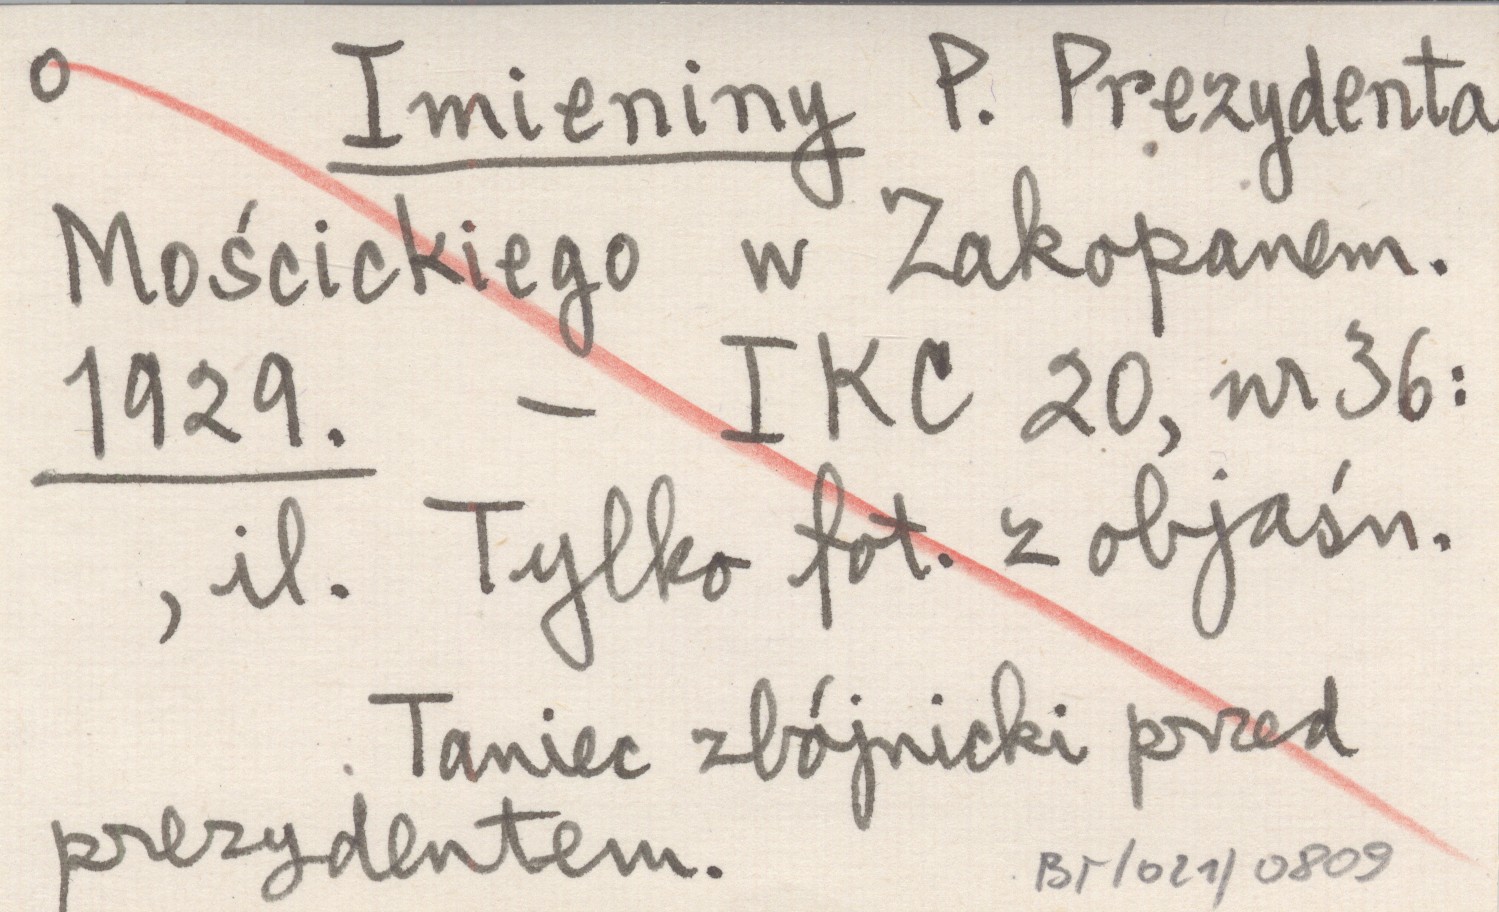 o Imieniny P. Prezydenta
Mościckiego w Zakopanem.
1929. – IKC 20, nr 36:
, il. Tylko fot. z objaśn.
Taniec zbójnicki przed
prezydentem.
Br/021/0809